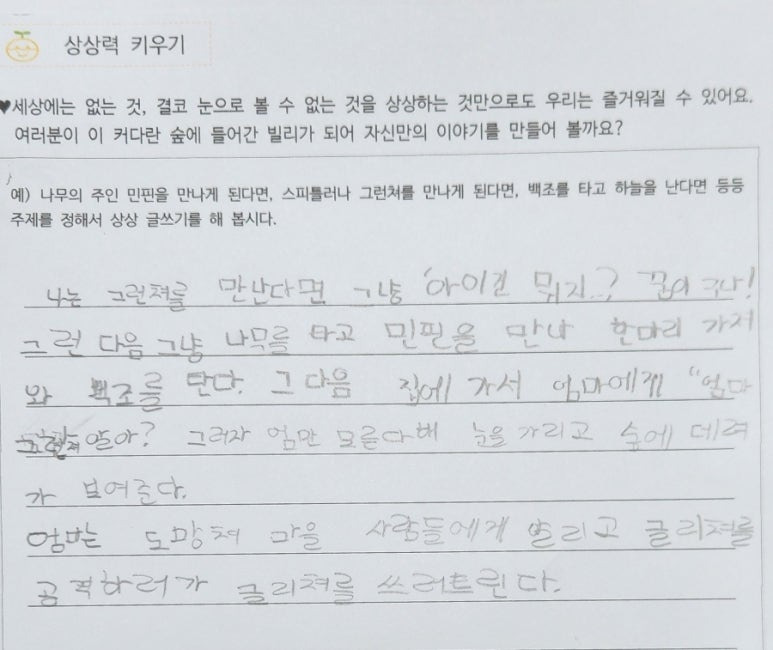 상상력 키우기
♥세상에는 없는 것, 결코 눈으로 볼 수 없는 것을 상상하는 것만으로도 우리는 즐거워질 수 있어요.
여러분이 이 커다란 숲에 들어간 빌리가 되어 자신만의 이야기를 만들어 볼까요?
예) 나무의 주인 민핀을 만나게 된다면, 스피틀러나 그런쳐를 만나게 된다면, 백조를 타고 하늘을 난다면 등등
주제를 정해서 상상 글쓰기를 해 봅시다.
나는 그런쳐를 만난다면 그냥 '아이건 뭐지..? 꿈이구나!
그런 다음 그냥 나무를 타고 민핀을 만나 한마리 가저
와 백조를 탄다. 그 다음 집에 가서 엄마에게 "엄마
알아? 그러자 엄만 모른다해 눈을 가리고 숲에 데려
가 보여준다.
엄마는 도망쳐 마을 사람들에게 알리고 글리쳐를
공격하러가 글리쳐를 쓰러트린다.